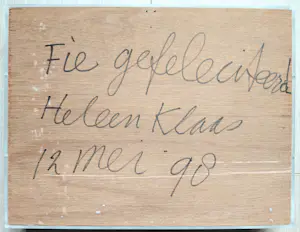 Fie gefeleciteerd
Heleen Klaas
12 mei 98